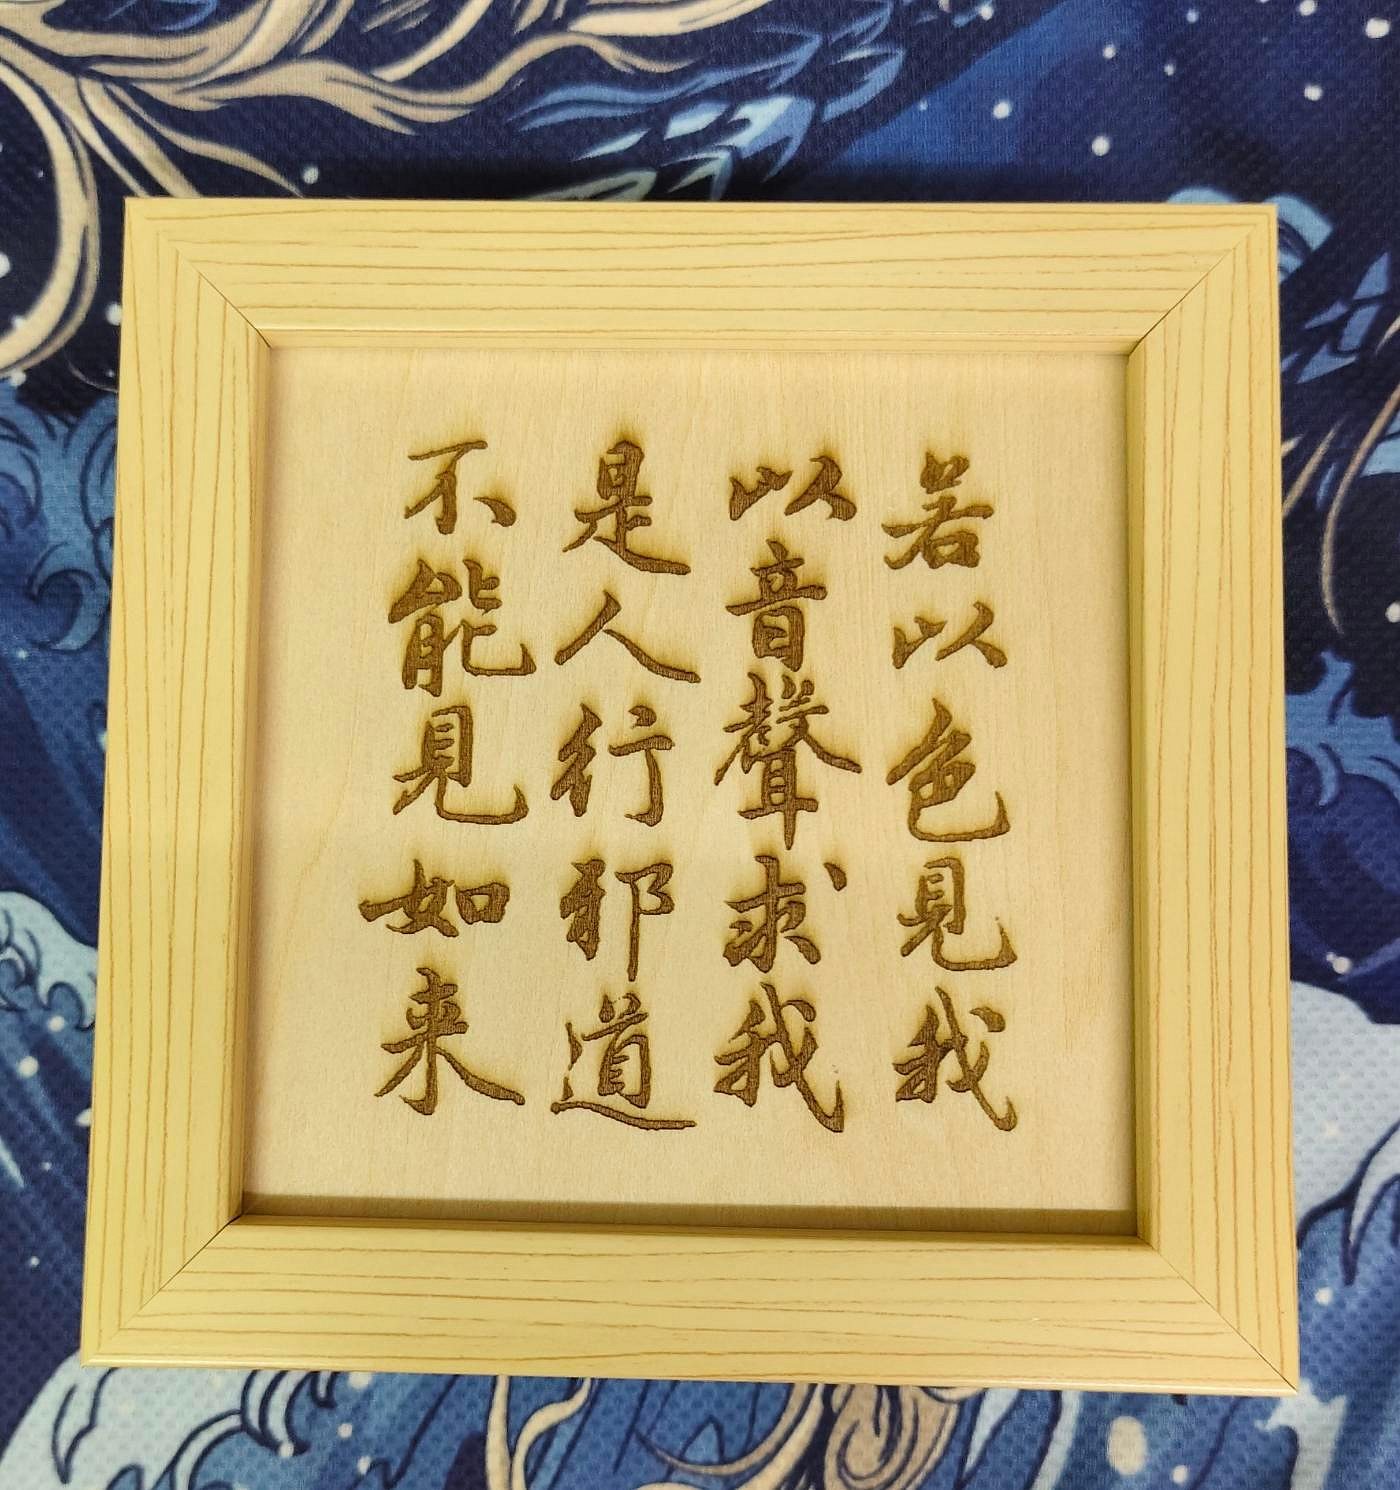 若以色見我
以音聲求我
是人行邪道
不能見如来